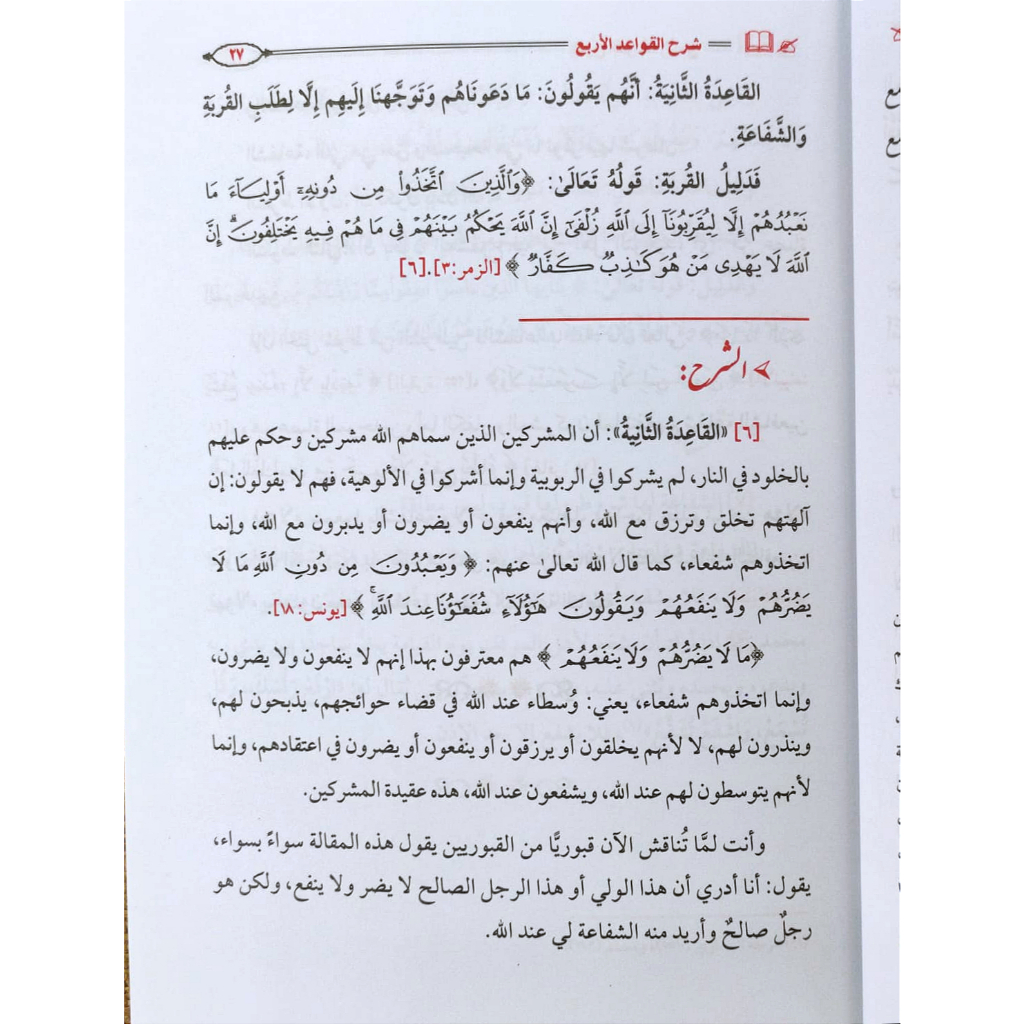 شرح القواعد الأربع
٢٧
القَاعِدَةُ الثَّانِيَةُ: أَنَّهُم يَقُولُونَ: مَا دَعَونَاهُم وَتَوَجَّهنَا إِلَيهِم إِلَّا لِطَلَبِ القُربَةِ
وَالشَّفَاعَةِ.
فَدَلِيلُ القُربَةِ: قَولُهُ تَعَالَىٰ: ﴿وَالَّذِينَ اتَّخَذُوا۟ مِن دُونِهِۦٓ أَوْلِيَآءَ مَا
نَعْبُدُهُمْ إِلَّا لِيُقَرِّبُونَآ إِلَى اللَّهِ زُلْفَىٰٓ إِنَّ اللَّهَ يَحْكُمُ بَيْنَهُمْ فِى مَا هُمْ فِيهِ يَخْتَلِفُونَ ۗ إِنَّ
اللَّهَ لَا يَهْدِى مَنْ هُوَ كَـٰذِبٌ كَفَّارٌ ﴾ [الزمر:٣].[٦]
➤ الشرح:
[٦] «القَاعِدَةُ الثَّانِيَةُ»: أن المشركين الذين سماهم الله مشركين وحكم عليهم
بالخلود في النار، لم يشركوا في الربوبية وإنما أشركوا في الألوهية، فهم لا يقولون: إن
آلهتهم تخلق وترزق مع الله، وأنهم ينفعون أو يضرون أو يدبرون مع الله، وإنما
اتخذوهم شفعاء، كما قال الله تعالىٰ عنهم: ﴿ وَيَعْبُدُونَ مِن دُونِ اللَّهِ مَا لَا
يَضُرُّهُمْ وَلَا يَنفَعُهُمْ وَيَقُولُونَ هَـٰٓؤُلَآءِ شُفَعَـٰٓؤُنَا عِندَ اللَّهِ ۚ ﴾ [يونس:١٨].
﴿مَا لَا يَضُرُّهُمْ وَلَا يَنفَعُهُمْ ﴾ هم معترفون بهذا إنهم لا ينفعون ولا يضرون،
وإنما اتخذوهم شفعاء، يعني: وُسطاء عند الله في قضاء حوائجهم، يذبحون لهم،
وينذرون لهم، لا لأنهم يخلقون أو يرزقون أو ينفعون أو يضرون في اعتقادهم، وإنما
لأنهم يتوسطون لهم عند الله، ويشفعون عند الله، هذه عقيدة المشركين.
وأنت لمَّا تُناقش الآن قبوريًّا من القبوريين يقول هذه المقالة سواءً بسواء،
يقول: أنا أدري أن هذا الولي أو هذا الرجل الصالح لا يضر ولا ينفع، ولكن هو
رجلٌ صالحٌ وأريد منه الشفاعة لي عند الله.